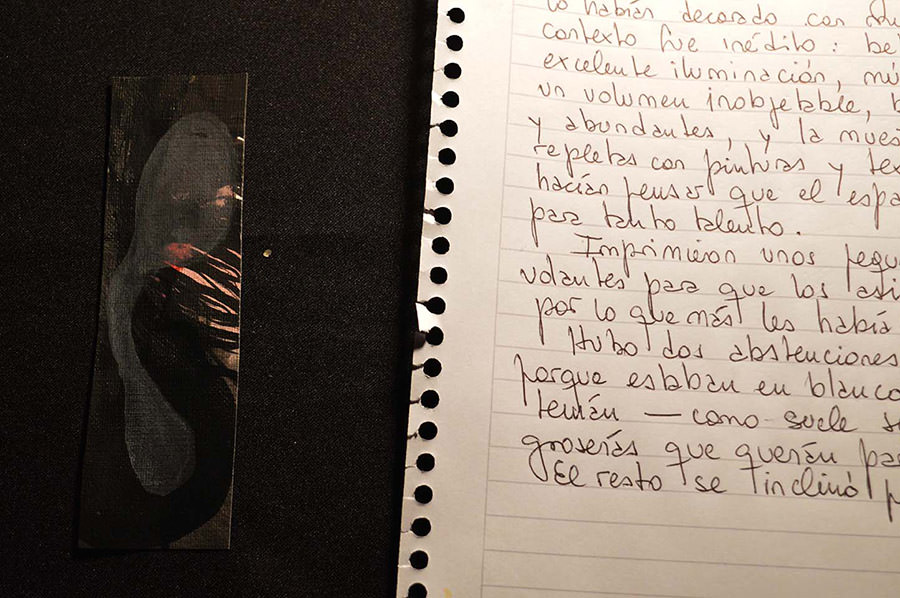 lo habían decorado con
contexto fue inédito: be
excelente iluminación, mú
un volumen inobjetable, b
y abundantes, y la mues
repletas con pinturas y tex
hacían pensar que el espa
para tanto talento.
Imprimieron unos peque
volantes para que los asi
por lo que más les había
Hubo dos abstenciones
porque estaban en blanco
tenían — como suele s
groserías que querían pa
El resto se inclinó p